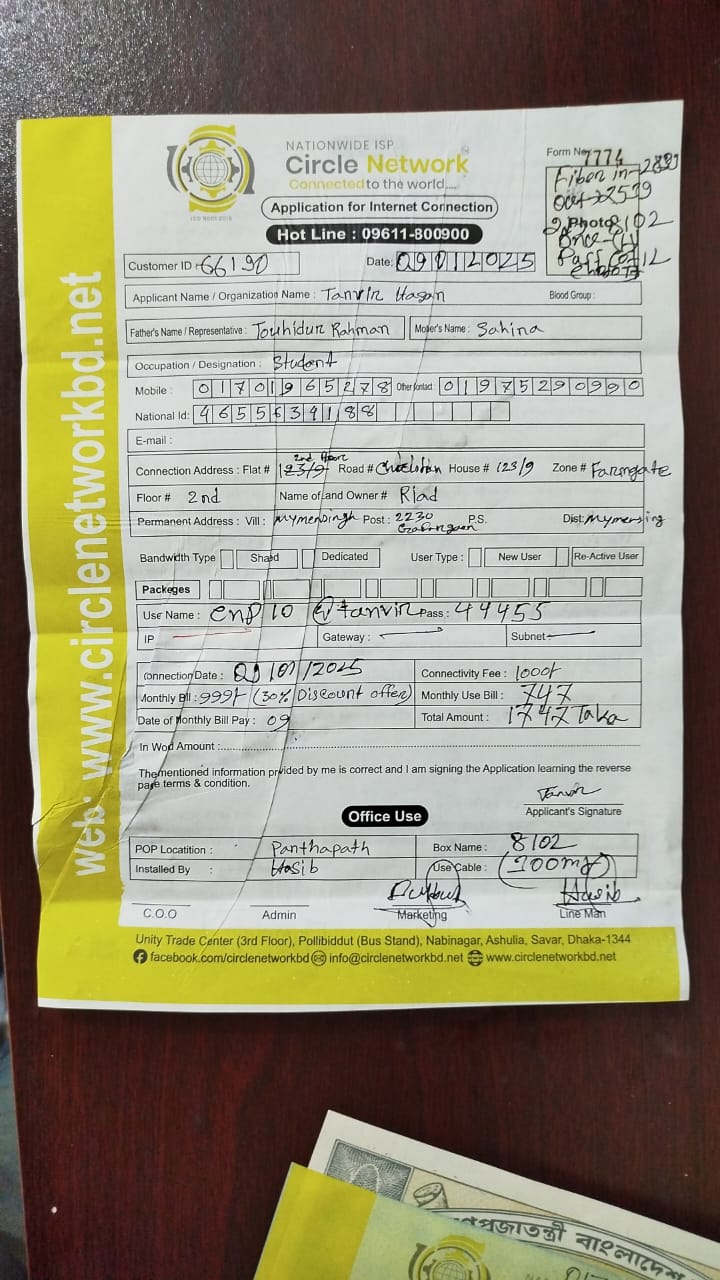 NATIONWIDE ISP
Circle Network
Connected to the world....
ISO 9001:2015
Application for Internet Connection
Hot Line : 09611-800900
Form No 7774
Fiber in-
2 Photo 8102
Customer ID : 66190
Date: 09012025
Applicant Name / Organization Name : Tanvir Hasan Blood Group :
Father's Name / Representative : Touhidur Rahman Mother's Name : Sahina
Occupation / Designation : Student
Mobile : 01701965278 Other Contact : 01975290990
National Id: 4655639188
E-mail :
Connection Address : Flat # 123/9 2nd Floor Road # House # 123/9 Zone # Farmgate
Floor # 2nd Name of Land Owner # Riad
Permanent Address : Vill : Mymensingh Post : 2230 P.S. Dist: Mymensing
Bandwidth Type Shared Dedicated User Type : New User Re-Active User
Packeges
Use Name : enp 10 @tanvir Pass : 44455
IP Gateway : Subnet
Connection Date : 09/01/2025 Connectivity Fee : 1000/-
Monthly Bill : 999/- (30% Discount offer) Monthly Use Bill : 747
Date of Monthly Bill Pay : 09 Total Amount : 1747 Taka
In Word Amount :
The mentioned information provided by me is correct and I am signing the Application learning the reverse
page terms & condition.
Tanvir
Applicant's Signature
Office Use
POP Locatition : Panthapath Box Name : 8102
Installed By : Hasib Use Cable : (200m)
Hasib
C.O.O Admin Marketing Line Man
Unity Trade Center (3rd Floor), Pollibiddut (Bus Stand), Nabinagar, Ashulia, Savar, Dhaka-1344
facebook.com/circlenetworkbd info@circlenetworkbd.net www.circlenetworkbd.net
web: www.circlenetworkbd.net
গণপ্রজাতন্ত্রী বাংলাদেশ